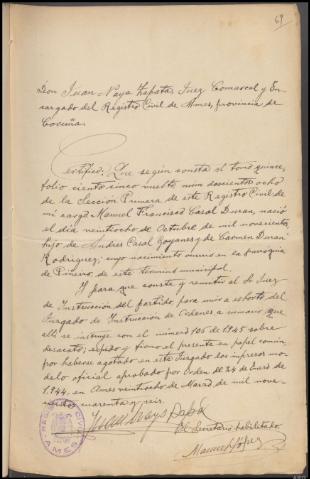 69
Don Juan Naya Zapata Juez Comarcal y En-
cargado del Registro Civil de Ames, provincia de
Coruña.
Certifico: Que según consta al tomo quince,
folio ciento cinco vuelto num doscientos ocho
de la Sección Primera de este Registro Civil de
mi cargo Manuel Francisco Casal Duran, nació
el día veintiocho de Octubre de mil novecientos
hijo de Andres Casal Goyanes y de Carmen Duran
Rodriguez; cuyo nacimiento en la parroquia
de Piñeiro, de este termino municipal.
Y para que conste y remitir al Sr Juez
de Instrucción del partido para unir a exhorto del
Juzgado de Instrucción de Ordenes a sumario que
allí se instruye con el número 105 de 1945 sobre
desacato; expido y firmo el presente en papel común,
por haberse agotado en este Juzgado los impresos mo-
delo oficial aprobado por Orden del 24 de Enero de
1.944, en Ames veintiocho de Marzo de mil nove-
cientos cuarenta y seis.
Juan Naya
El Secretario habilitado
Manuel López
AMES